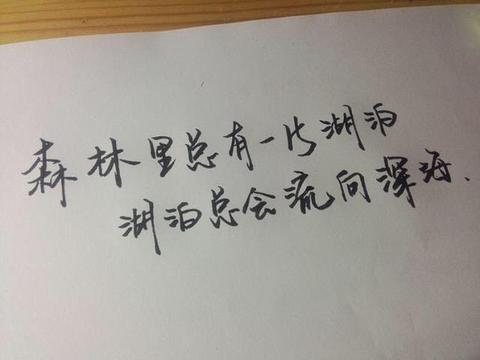 森林里总有一片湖泊
湖泊总会流向深海.